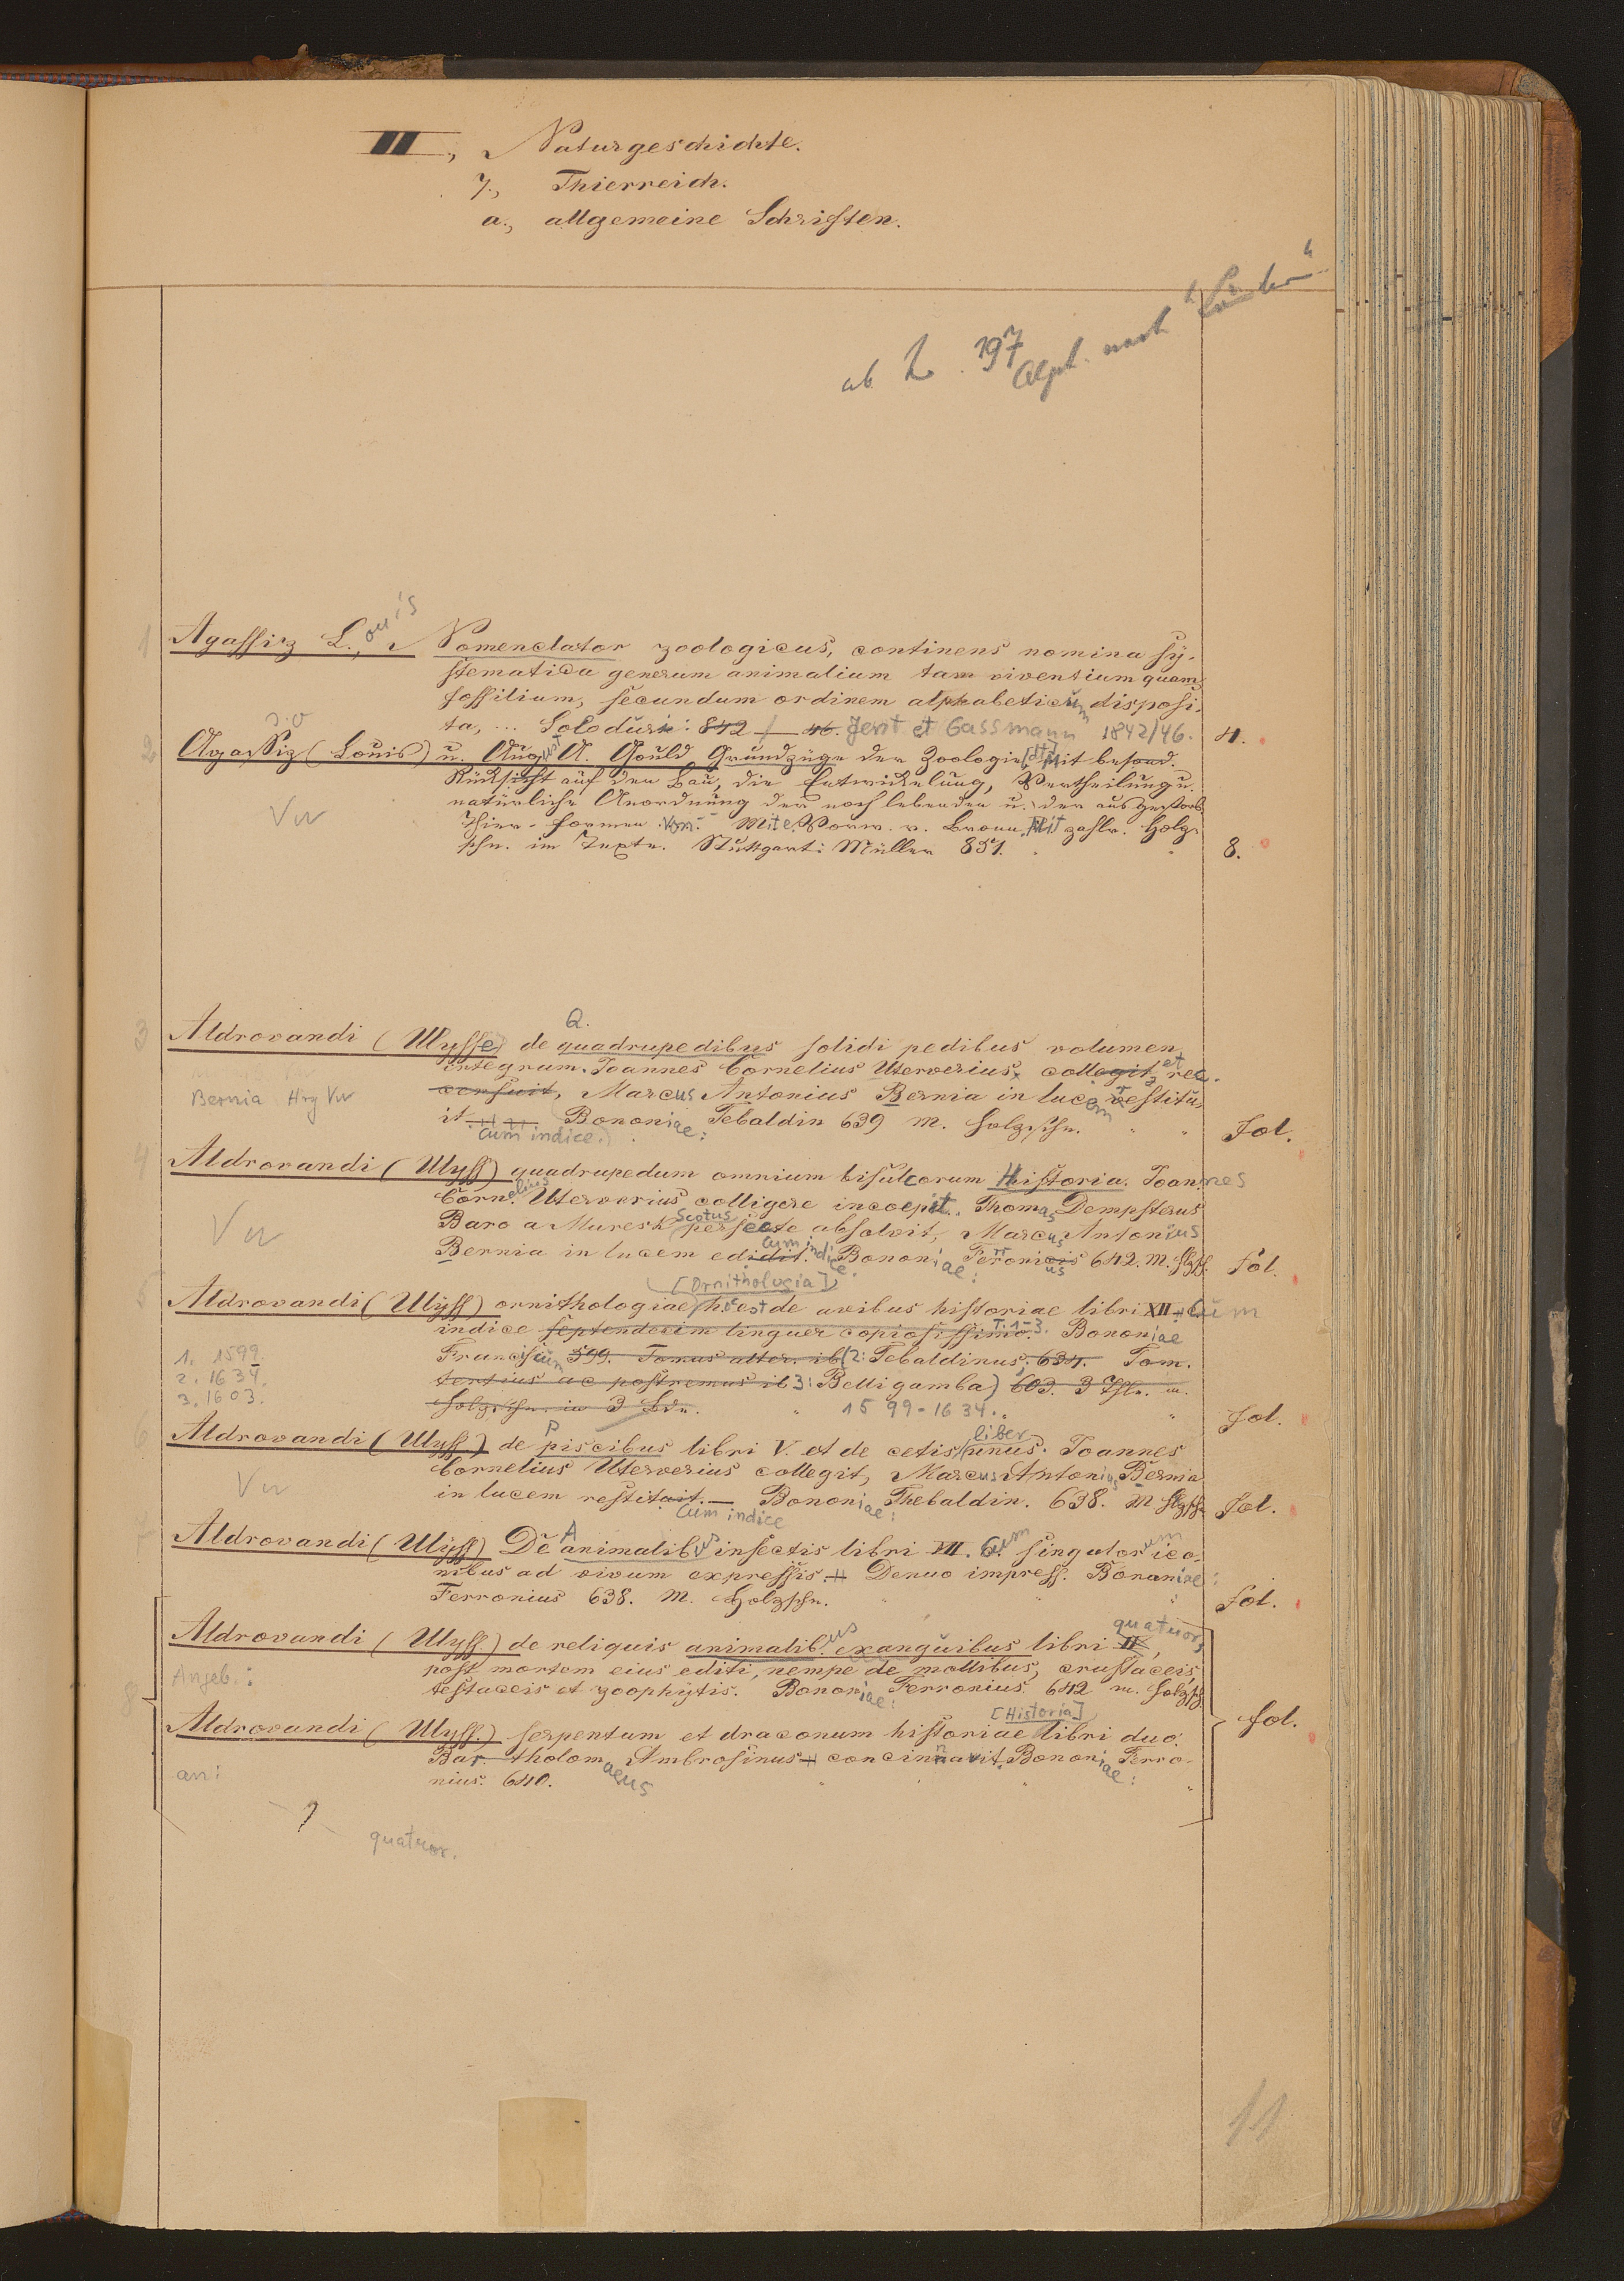 II., Naturgeschichte.
7., Thierreich.
a., allgemeine Schriften.
ab 197
Alph. nach "Länder"
1 Agassiz L., ouis Nomenclator zoologicus, continens nomina sy-
stematica generum animalium tam viventium quam
fossilium, secundum ordinem alphabeticum disposi-
ta, ... Soloduri: 842 / — 46. Jent et Gassmann 1842/46. 4.
2 Agassiz (Louis) u. August A. Gould Grundzüge der Zoologie mit besond.
Rücksicht auf den Bau, die Entwickelung, Vertheilung u.
natürliche Anordnung der noch lebenden u. der ausgestorb.
Vw
Thier-Formen Mit e. Vorw. v. Bronn. Mit zahlr. Holz-
schn. im Texte. Stuttgart: Müller 851. 8.
3 Aldrovandi (Ulysse) de Q. quadrupedibus solidi pedibus volumen
integrum. Joannes Cornelius Uterverius collegit, et rec-
Bernia Hrg Vw
censuit, Marcus Antonius Bernia in lucem restitu-
it Bononiae: Tebaldin 639 m. Holzschn. Fol.
cum indice.
4 Aldrovandi (Ulyss) quadrupedum omnium bisulcorum Historia. Joannes
Cornelius Uterverius colligere incoepit. Thomas Dempsterus
Vw
Baro a Muresk Scotus perfecte absolvit, Marcus Antonius
Bernia in lucem edidit. cum indice. Bononiae: Ferronius 642. M. Hlzsch. Fol.
[Ornithologia]
5 Aldrovandi (Ulyss) ornithologiae hoc est de avibus historiae libri XII. Cum
indice septendecim linguer copiosissimo. T. 1-3. Bononiae
1. 1599.
2. 1634.
3. 1603.
Francisium 599. Tomus alter. ib (2: Tebaldinus, 634. Tom.
tertius ac postremus ib 3: Belligamba) 603. 3 Thle. m.
Holzschn. in 3 Bdn. 1599-1634. Fol.
6 Aldrovandi (Ulyss.) de P piscibus libri V. et de cetis liber unus. Joannes
Cornelius Uterverius collegit, Marcus Antonius Bernia
Vw
in lucem restituit. — Bononiae: Thebaldin. 638. M Hlzsch. Fol.
Cum indice
7 Aldrovandi (Ulyss) De A animalibus insectis libri VII. Cum singulorum ico-
nibus ad vivum expressis. Denuo impress. Bononiae:
Ferronius 638. M. Holzschn. Fol.
8 Aldrovandi (Ulyss.) de reliquis animalibus exanguibus libri IV, quatuor,
post mortem eius editi, nempe de mollibus, crustaceis
Angeb.:
testaceis et zoophytis. Bononiae: Ferronius. 642 m. Holzsch
[Historia]
Aldrovandi (Ulyss.) serpentum et draconum historiae libri duo.
Fol.
Bartholomaeus Ambrosinus concinnavit. Bononiae: Ferro-
an:
nius. 640.
quatuor.
11